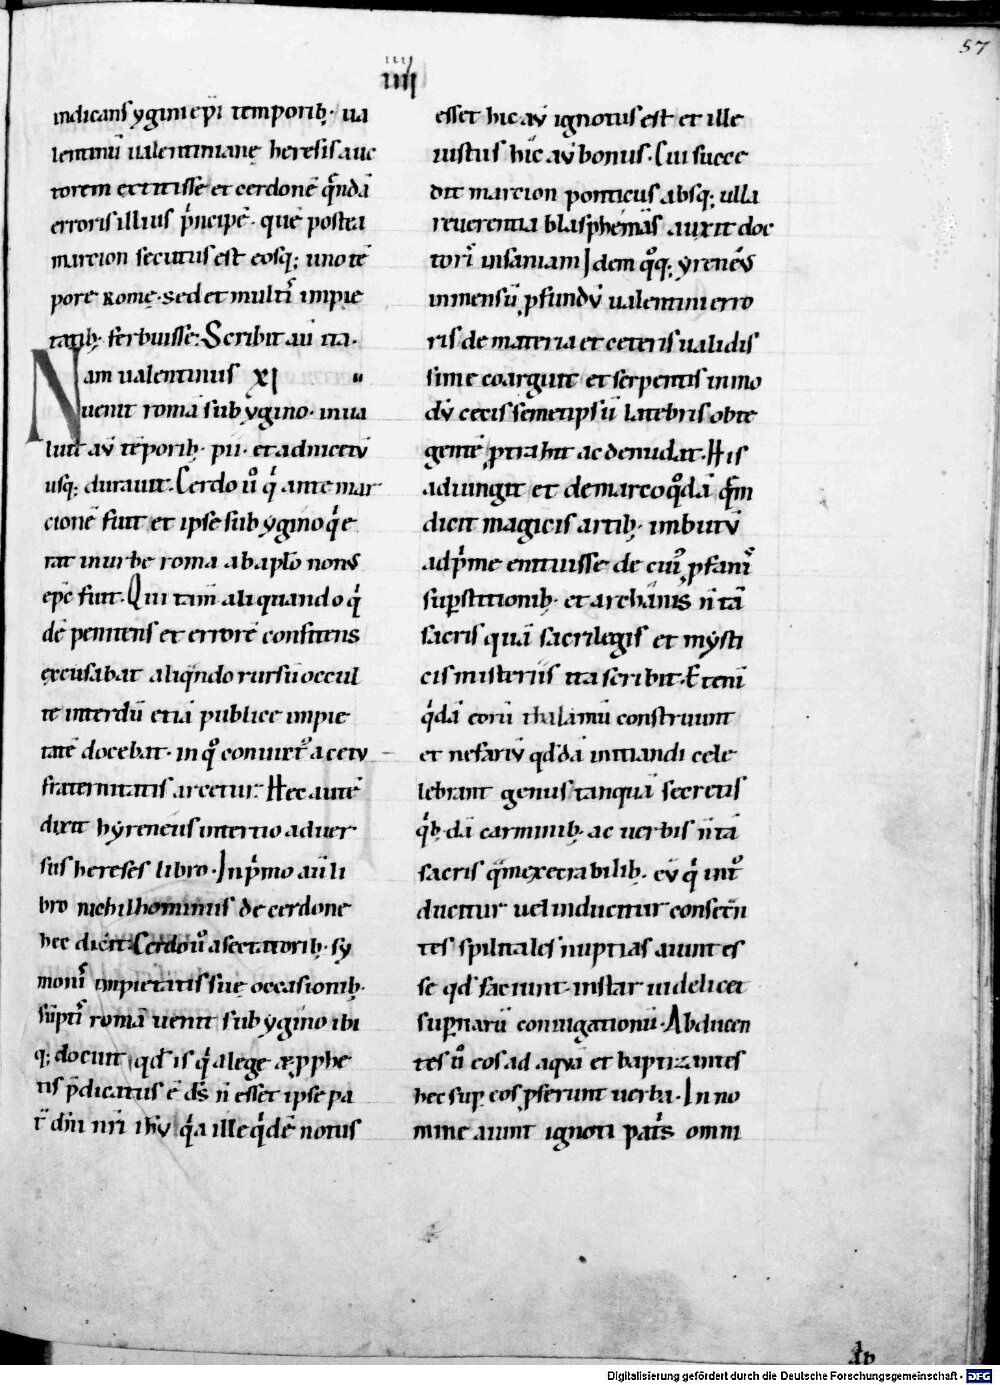 57
iiii
indicans ygini ep̄i temporib; ua
lentinū ualentinianę heresis auc
torem extitisse et cerdonē q̄ndā
erroris illius p̍ncipē. quē postea
marcion secutus est eosq; uno tē
pore romę. sed et multı̄ impie
tatib; ferbuisse. Scribit aū ita.
Nam ualentinus XI
uenit romā sub ygino. inua
luit aū tēporib; pii. et adnicetū
usq; durauit. Cerdo u̾ q̍ ante mar
cionē fuit et ipse sub ygino q̍ e
rat in urbe roma ab aplo non⁹
ep̄c fuit. Qui tam̄ aliquando q̍
dē penitens et errorē confitens
excusabat aliq̄ndo rursū occul
te interdū etiā publice impie
tatē docebat. in q̊ conuict̾ a cetu
fraternitatis arcetur. Hec autē
dixit hyreneus in tertio aduer
sus hereses libro. In p̍mo aū li
bro nichilhominus de cerdone
hec dicit. Cerdo u̾ a sectatorib; sy
monı̄ impietatis suę occasionib;
sūptı̄ romā uenit sub ygino ibi
q; docuit qd̄ is q̍ a lege & pphe
tis p̄dicatus ē d̄s n̄ esset ipse pa
t̄ dn̄i nr̄i ihu q̍a ille q̍dē notus
esset hic aū ignotus est et ille
iustus hic aū bonus. Cui succe
dit marcion ponticus absq; ulla
reuerentia blasphemās auxit doc
torı̄ insaniam Idem q̊q; yrene⁹
inmensū pfundū ualentini erro
ris de materia et ceteris ualidis
sime coarguit et serpentis in mo
dū cecis semetipsū latebris obte
gentē ptrahit ac denudat. His
adiungit et de marco q̊dā q̄m
dicit magicis artib; imbutū
adp̍me enituisse de cui̾ pfanı̄
supstitionib; et archanis n̄ tā
sacris quā sacrilegis et mysti
cis misteriis ita scribit. Etenı̄
q̍dā eorū thalamū construunt
et nefariū qd̄dā initiandi cele
lebrant genus tanquā secretis
q̍b;dā carminib; ac uerbis n̄ tā
sacris q̄m execrabilib; cū q̍ int̾
ducitur uel inducitur consecn̄
tes spiritales nuptias aiunt es
se qd̄ faciunt. instar uidelicet
supnarū coniugationū. Abducen
tes u̾ eos ad aquā et baptizantes
hec sup eos pferunt uerba. In no
mine aiunt ignoti pat̍s omni
Digitalisierung gefördert durch die Deutsche Forschungsgemeinschaft - DFG